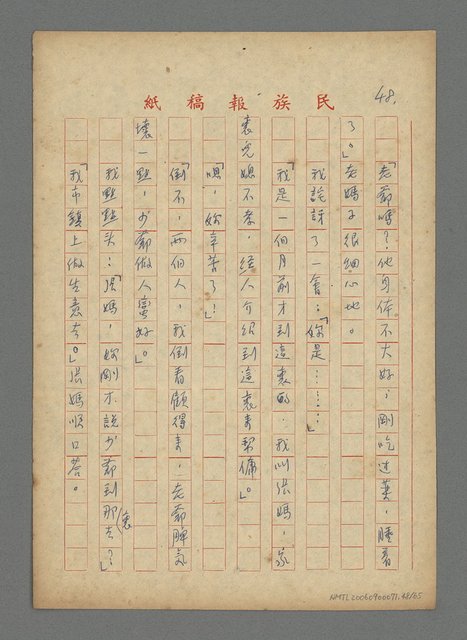 民族報稿紙
48.
「老爺嗎?他身体不大好,剛吃過藥,睡着
了。」老媽子很細心地。
我詫訝了一會:「妳是………」
「我是一個月前才到這裏的,我叫張媽,家
裏兒媳不孝,經人介紹到這裏來幫傭。」
「噢,妳辛苦了!」
「倒不,兩個人,我倒看顧得來,老爺脾氣
壞一點,少爺做人蠻好。」
我點點頭:「張媽,妳剛才說少爺到那裏去?」
「我市鎮上做生意去。」張媽順口答。
NMTL20060900071.48/65